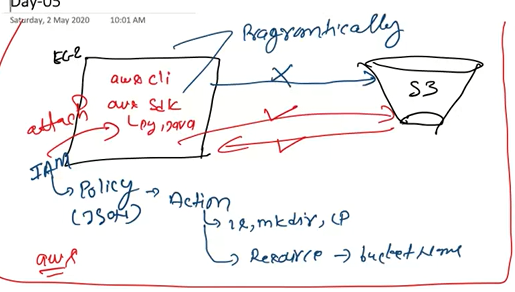 Day-05
Saturday, 2 May 2020 10:01 AM
Programtically
EC2
aws cli
aws sdk
py, java
S3
attach
IAM
Policy → Action
(JSON)
ls, mkdir, cp
Resource → bucket name
aws